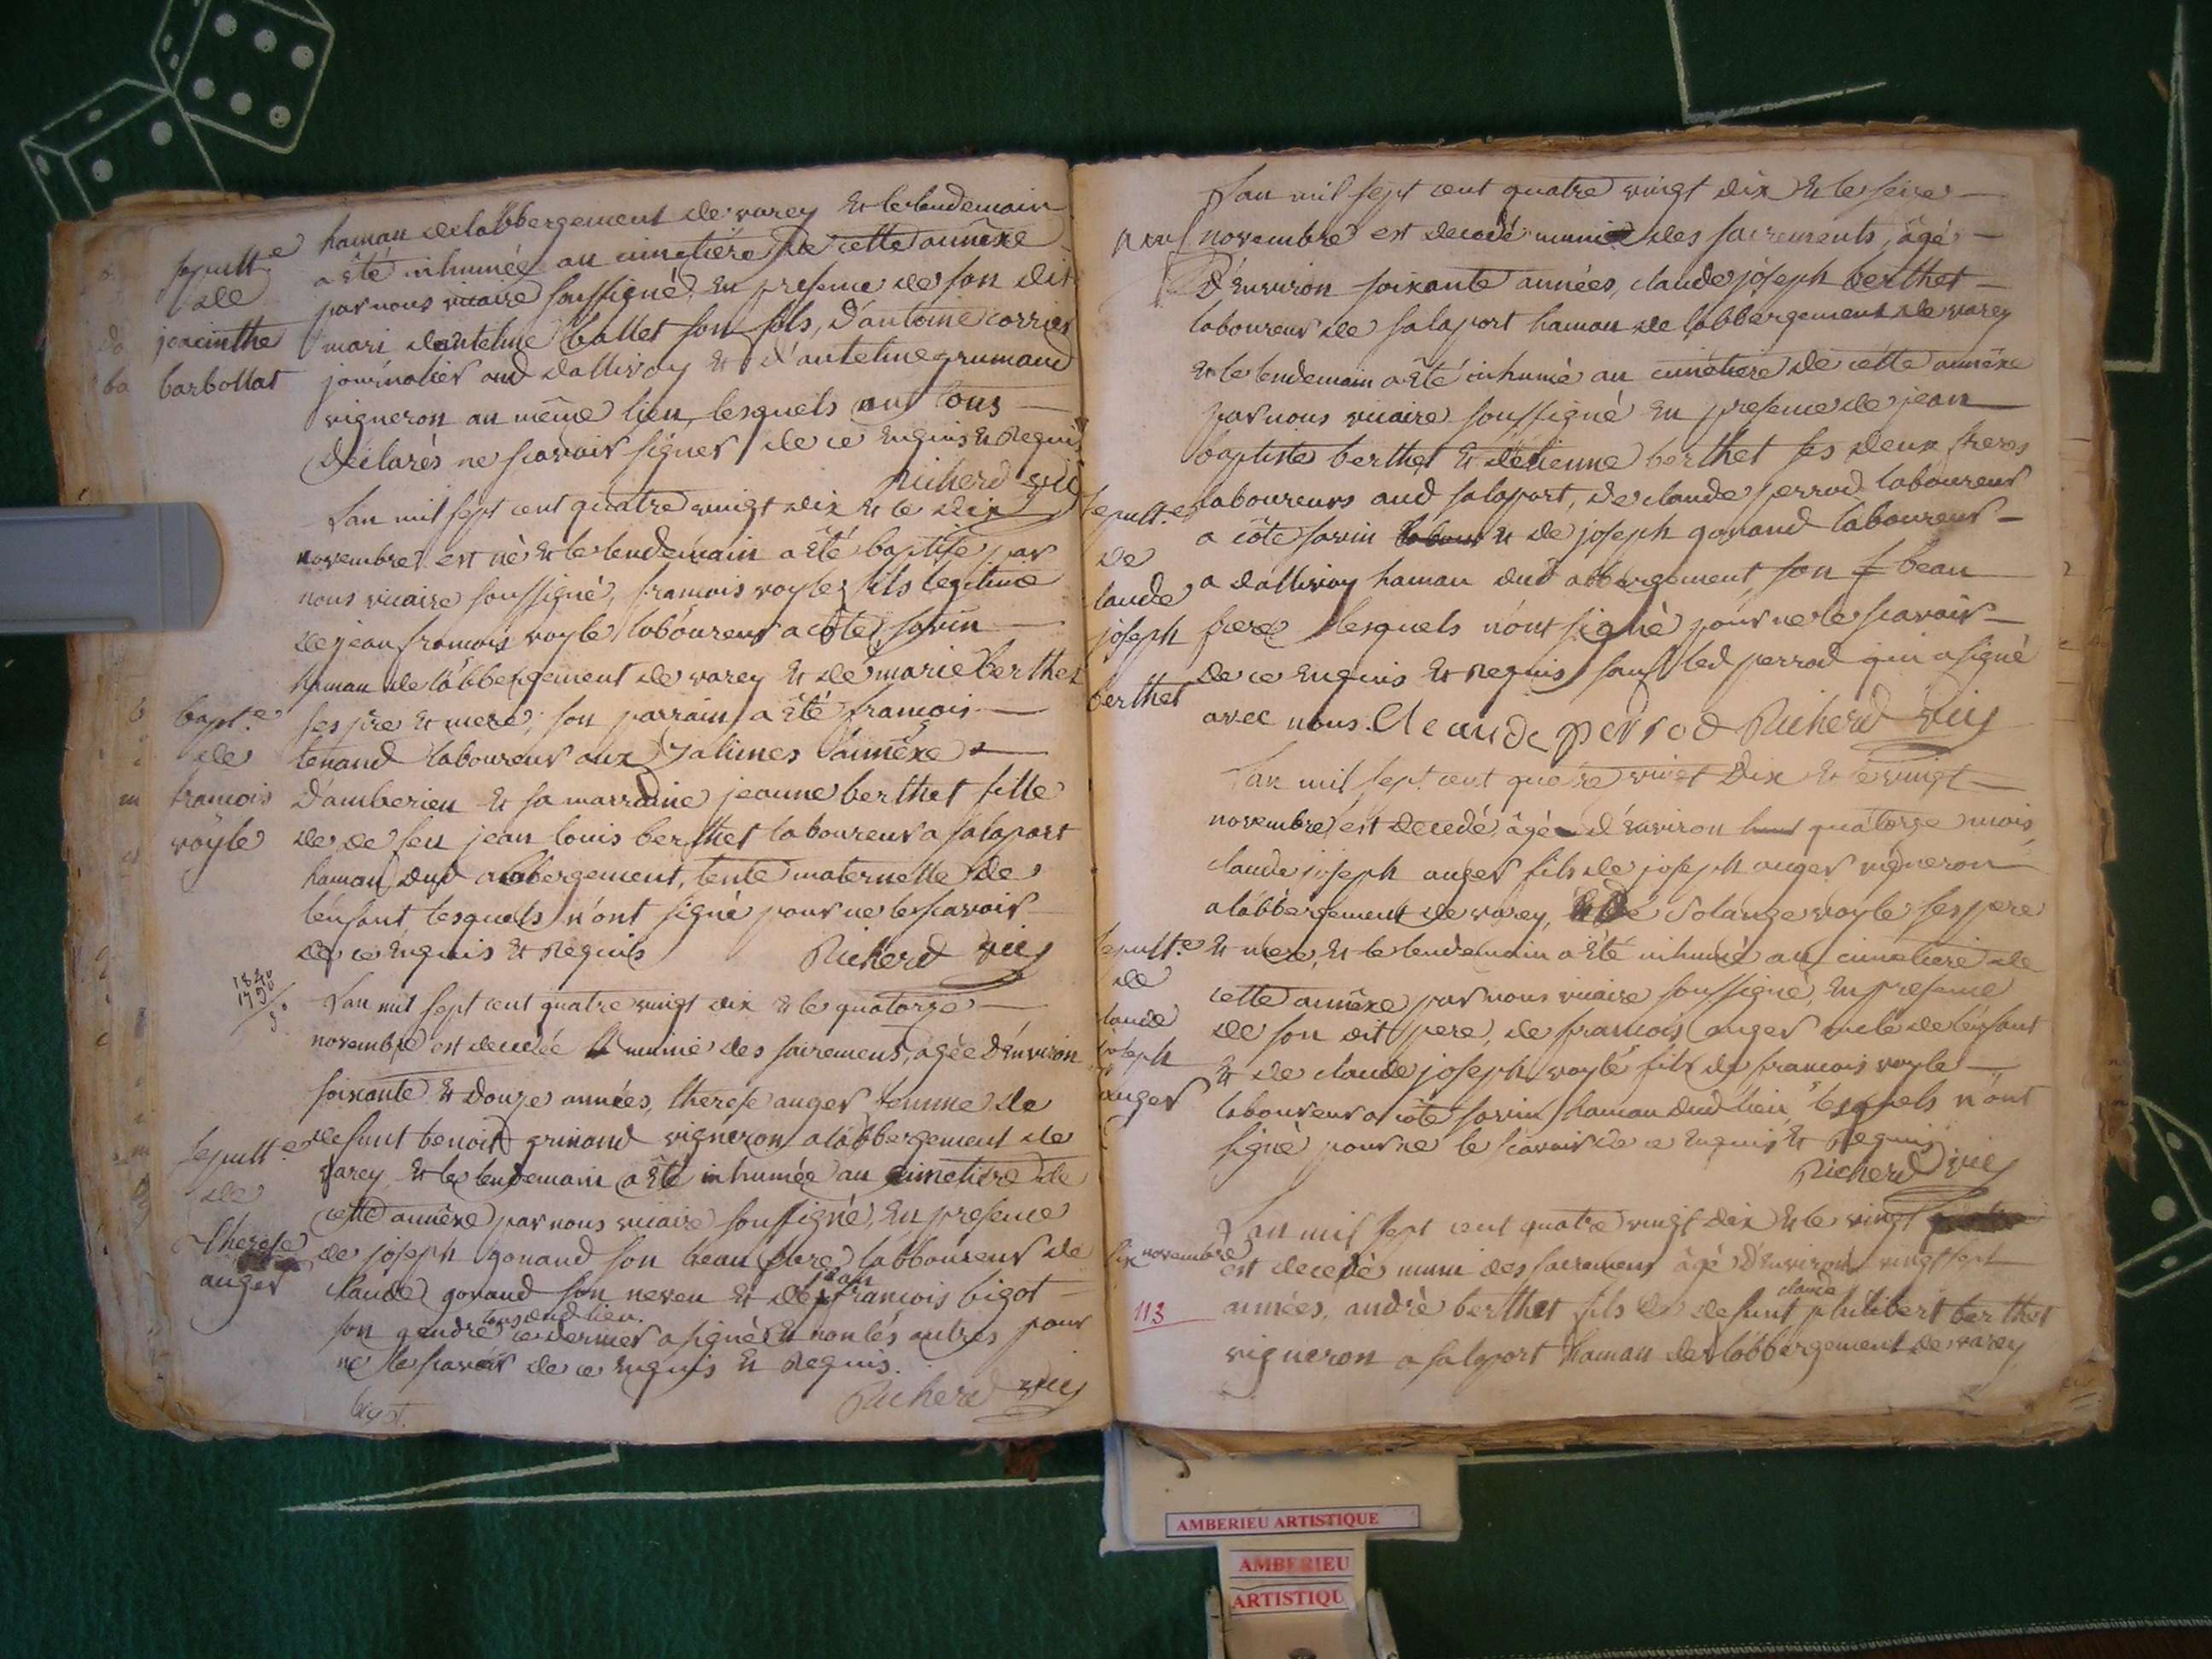 hamau de labbergement de varey et le lendemain
a été inhumée au cimetière de cette annèxe
par nous vicaire soussigné, en presence de son dit
mari d'anteline ballet son fils, d'antoine corrier
journalier aud dallivoy et d'anteline grumaud
vigneron au même lieu, lesquels ont tous
déclarés ne scavoir signer de ce enquis et requis
Richerd vic
sepult.e
de
jeacinthe
barbollat
L'an mil sept cent quatre vingt dix et le dix
novembre est né et le lendemain a été baptise par
nous vicaire soussigné, francois royle fils legitime
de jean francois royle laboureur a côte savin
hamau de labbergement de varey et de marie berthet
ses pere et mere; son parrain a été francois
tenand laboureur aux alimes d'annêxe
d'amberieu et sa marraine jeanne berthet fille
de de feu jean louis berthet laboureur a salaport
hamau dud abbergement, tente maternelle de
l'enfant lesquels n'ont signé pour ne le scavoir
de ce enquis et requis Richerd vic
bapt.e
de
francois
royle
1840
1790
50
L'an mil sept cent quatre vingt dix et le quatorze
novembre est decedée munie des sacremens, agée d'environ
soixante et douze années, therese auger femme de
defunt benoit grinand vigneron a labbergement de
varey et le lendemain a été inhumée au cimetiere de
cette annêxe par nous vicaire soussigné, en presence
de joseph gonand son beau frere labboureur de
claude gonand son neveu et de jean francois bigot
son gendre tous dud lieu. ce dernier a signé et non lés autres pour
ne le scavoir de ce enquis et requis.
bigot. Richerd vic
sepult.e
de
therese
auger
L'an mil sept cent quatre vingt dix et le seize
novembre est decedé muni des sacrements, âgé
d'environ soixante années, claude joseph berthet
laboureur de salaport hamau de labbergement de varey
et le lendemain a été inhumé au cimetiere de cette annêxe
par nous vicaire soussigné en presence de jean
baptiste berthet et d'etienne berthet ses deux freres
laboureurs aud salaport, de claude perrod laboureur
a côte savin et de joseph gonand laboureur
a dallivoy hamau dud abbergement, son f beau
frere lesquels n'ont signé pour ne le scavoir
de ce enquis et requis sauf led perrod qui a signé
avec nous. Cleaude perrod Richerd vic
sepult.e
de
claude
joseph
berthet
L'an mil sept cent quatre vingt dix et le vingt
novembre est decedé âgé d'environ quatorze mois,
claude joseph auger fils de joseph auger vigneron
a labbergement de varey, et de Solange royle ses pere
et mere, et le lendemain a été inhumé au cimetiere de
cette annêxe par nous vicaire soussigné, en presence
de son dit pere, de francois auger oncle de l'enfant
et de claude joseph royle fils de francois royle
laboureur a côte savin hamau dud lieu, lesquels n'ont
signé pour ne le scavoir de ce enquis et requis
Richerd vic
sepult.e
de
claude
joseph
auger
L'an mil sept cent quatre vingt dix et le vingt
six novembre est decedé muni des sacremens âgé d'environ vingt sept
années, andrè berthet fils de defunt claude philibert berthet
vigneron a salaport hamau de labbergement de varey
113
AMBERIEU ARTISTIQUE
AMBERIEU
ARTISTIQU